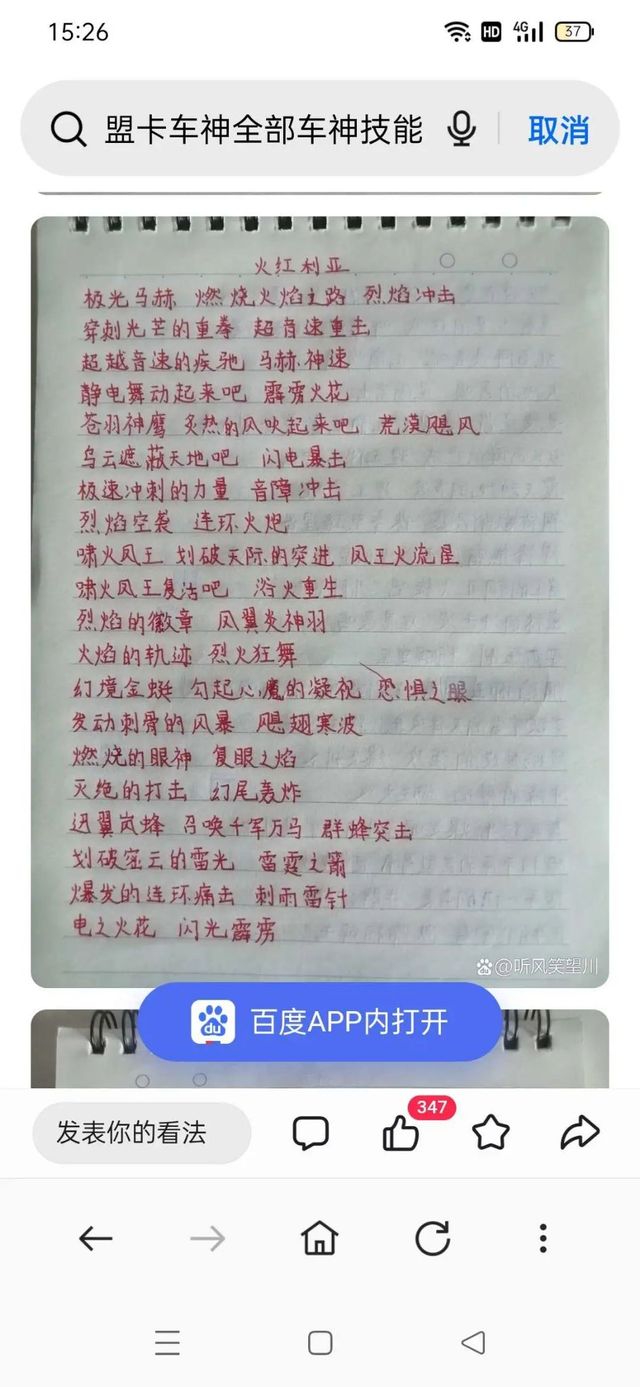 15:26
HD 4G 37
盟卡车神全部车神技能 取消
火红利亚
极光马赫 燃烧火焰之路 烈焰冲击
穿刺光芒的重拳 超音速重击
超越音速的疾驰 马赫神速
静电舞动起来吧 霹雳火花
苍羽神鹰 炙热的风吹起来吧 荒漠飓风
乌云遮蔽天地吧 闪电暴击
极速冲刺的力量 音障冲击
烈焰空袭 连环火炮
啸火凤王 划破天际的突进 凤王火流星
啸火凤王复活吧 浴火重生
烈焰的徽章 凤翼炎神羽
火焰的轨迹 烈火狂舞
幻境金蜓 勾起心魔的凝视 恐惧之眼
发动刺骨的风暴 飓翅寒波
燃烧的眼神 复眼之焰
灭绝的打击 幻尾轰炸
迅翼岚蜂 召唤千军万马 群蜂突击
划破密云的雷光 雷霆之箭
爆发的连环痛击 刺雨雷针
电之火花 闪光霹雳
@听风笑望川
百度APP内打开
发表你的看法 347